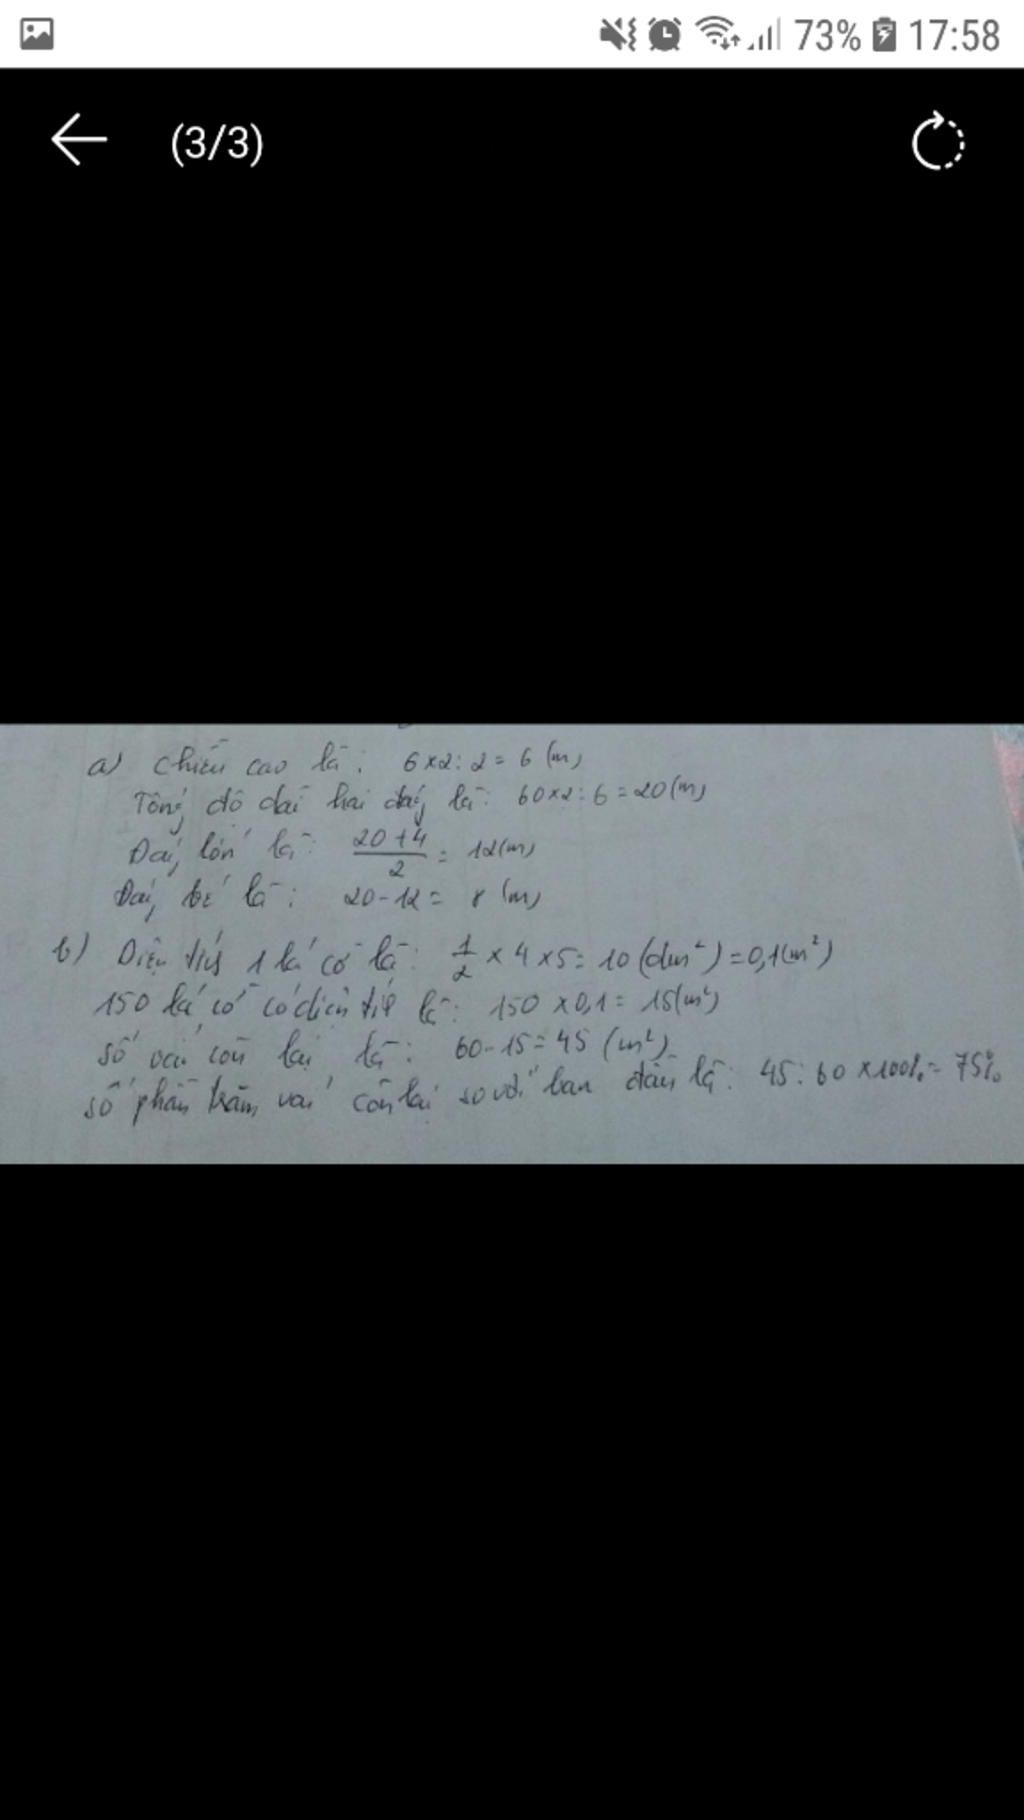 73% 17:58
(3/3)
a) Chiều cao là: 6 x 2 : 2 = 6 (m)
Tổng độ dài hai đáy là: 60 x 2 : 6 = 20 (m)
Đáy lớn là: \frac{20+4}{2} = 12 (m)
Đáy bé là: 20 - 12 = 8 (m)
b) Diện tích 1 lá cờ là: \frac{1}{2} x 4 x 5 = 10 (dm²) = 0,1 (m²)
150 lá cờ có diện tích là: 150 x 0,1 = 15 (m²)
Số vải còn lại là: 60 - 15 = 45 (m²)
Số phần trăm vải còn lại so với ban đầu là: 45 : 60 x 100% = 75%